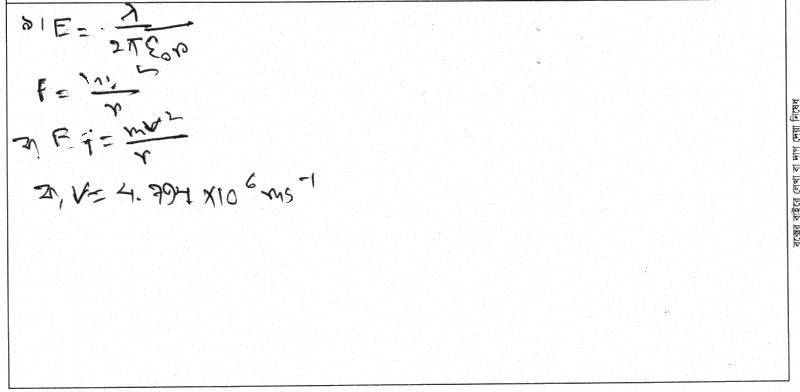 ৯। E = λ / 2πε₀r
F = mv² / r
বা, F = mv² / r
বা, V = 4.794 × 10⁶ ms⁻¹
বক্সের বাইরে লেখা বা দাগ দেয়া নিষেধ